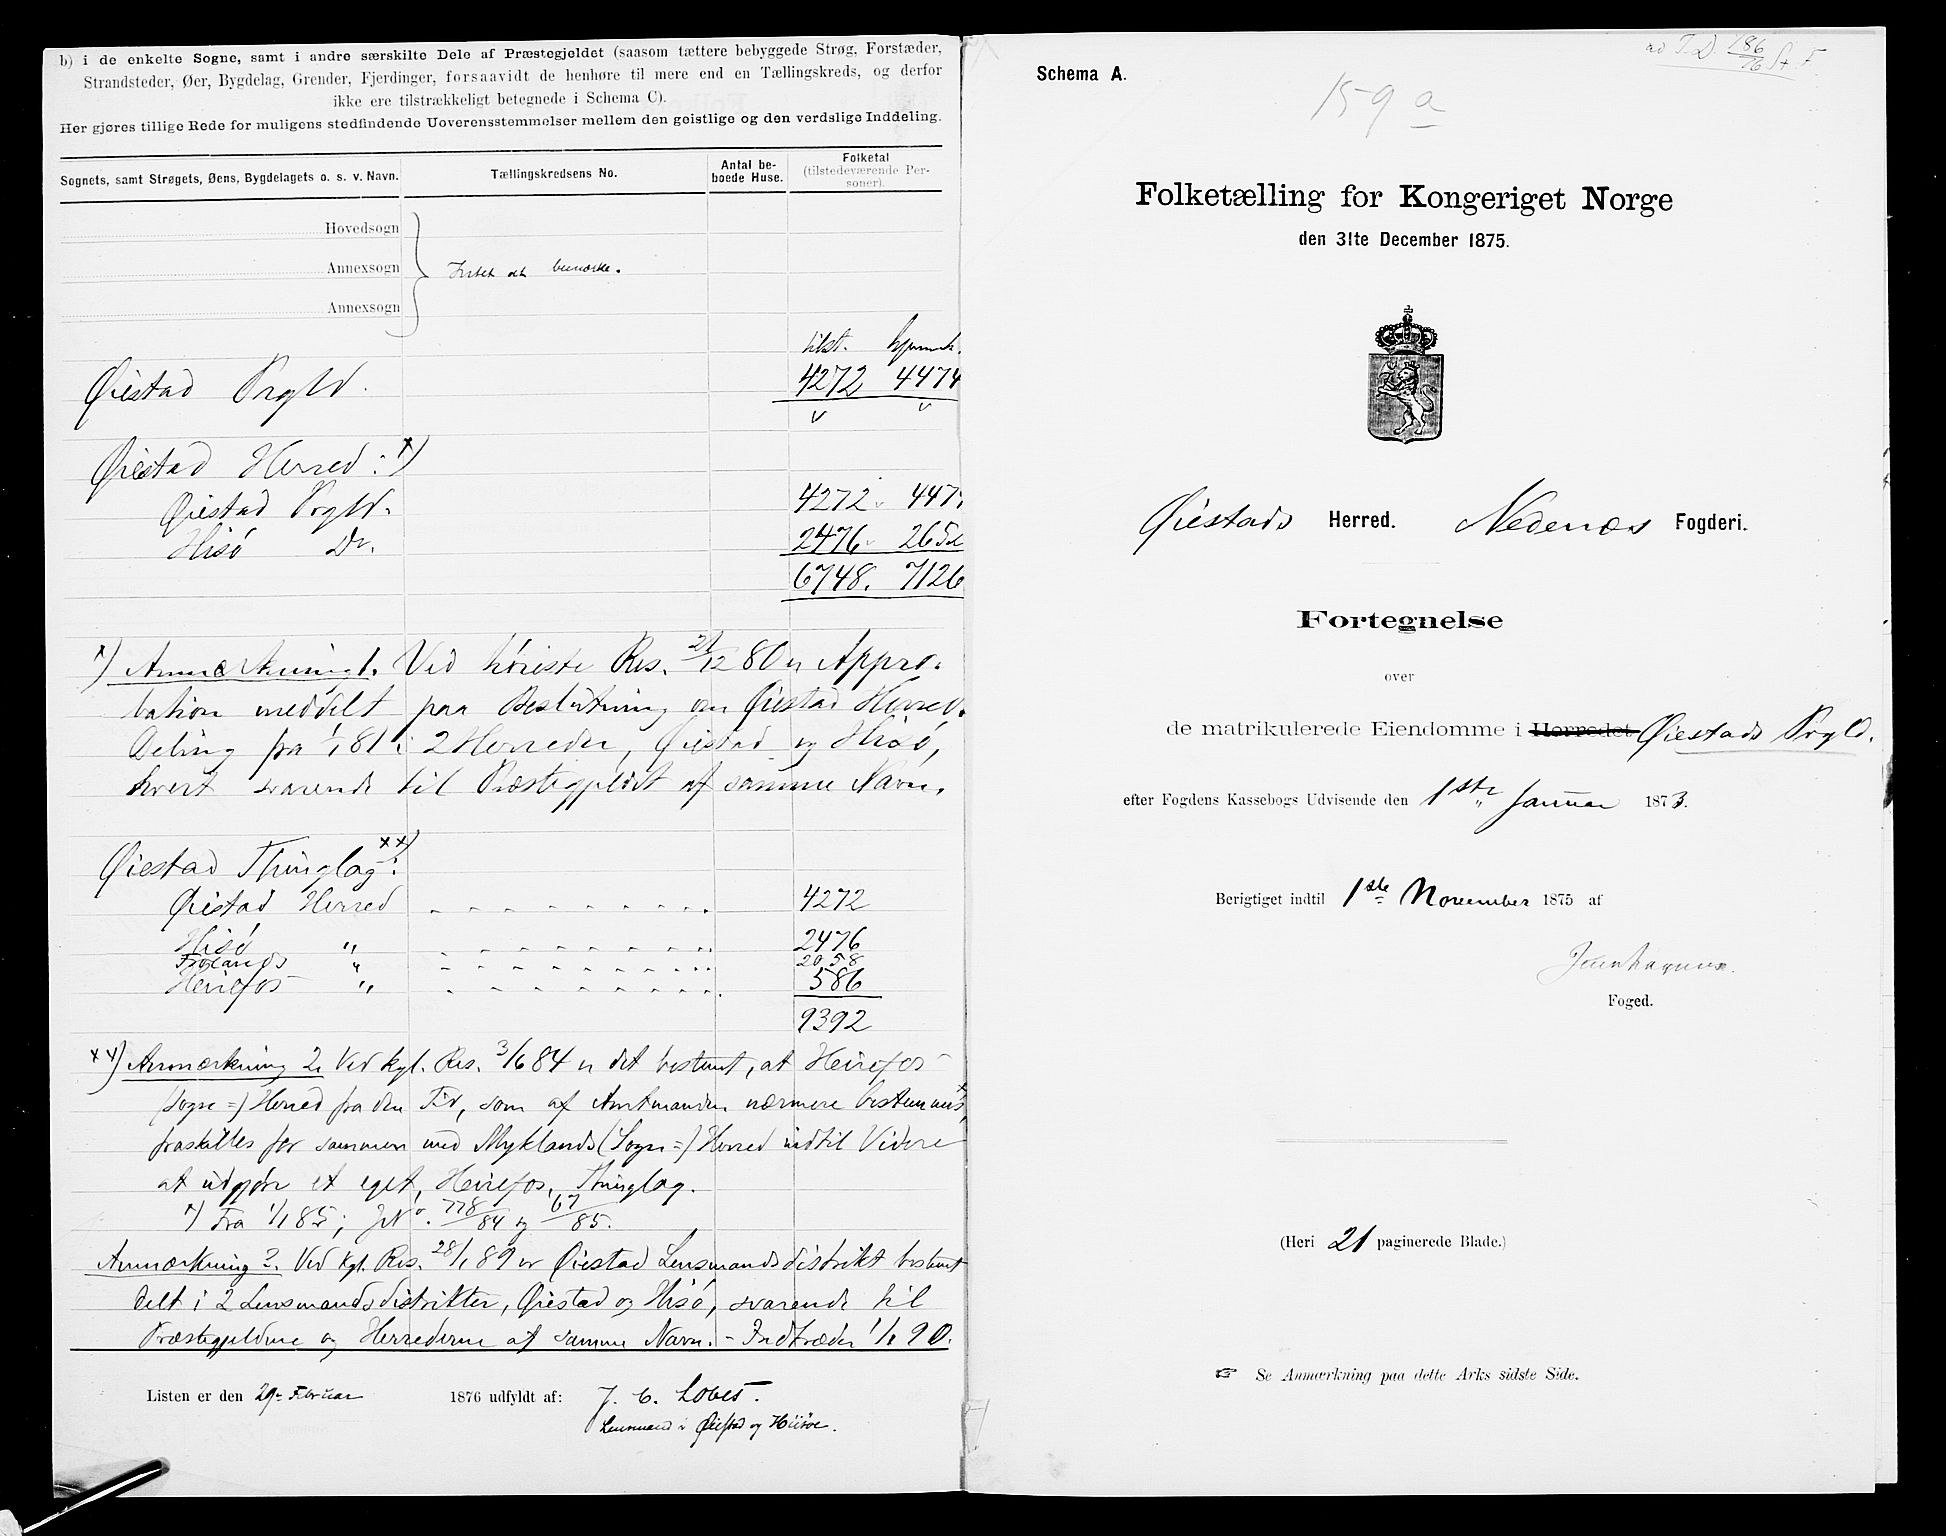 b) i de enkelte Sogne, samt i andre særskilte Dele af Præstegjeldet (saasom tættere bebyggede Strøg, Forstæder,
Strandsteder, Øer, Bygdelag, Grender, Fjerdinger, forsaavidt de henhøre til mere end en Tællingskreds, og derfor
ikke ere tilstrækkeligt betegnede i Schema C).
Her gjøres tillige Rede for muligens stedfindende Uoverensstemmelser mellem den geistlige og den verdslige Inddeling.
Sognets, samt Strøgets, Øens, Bygdelagets o. s. v. Navn.
Tællingskredsens No.
Antal be-
boede Huse.
Folketal
(tilstedeværende Per-
soner).
Hovedsogn
Annexsogn
Annexsogn
Intet at bemærke.
tilst. hjemmeh.
Øiestad Prgld. 4272 4474
Øiestad Herred: x)
Øiestad Prgld. 4272 447
Hisø Do. 2476 265
6748. 7126
x) Anmærkning 1. Ved høieste Res. 21/12 80 er Appro-
bation meddelt paa Beslutning om Øiestad Herreds
Deling fra 1/1 81 i 2 Herreder, Øiestad og Hisø,
hvert svarende til Præstegjeldet af samme Navn.
Øiestad Thinglag: xx)
Øiestad Herred 4272
Hisø " 2476
Frolands " 2058
Heirefos " 586
9392
xx) Anmærkning 2. Ved kgl. Res. 3/6 84 er det bestemt, at Heirefos
(Sogne=) Herred fra den Tid, som af Amtmanden nærmere bestemmes x),
fraskilles for sammen med Myklands (Sogne=) Herred indtil Videre
at udgjøre et eget, Heirefos, Thinglag.
x) Fra 1/1 85; JNo. 778/84 og 67/85.
Anmærkning 3. Ved Kgl. Res. 28/1 89 er Øiestad Lensmandsdistrikt bestemt
delt i 2 Lensmandsdistrikter, Øiestad og Hisø, svarende til
Præstegjeldene og Herrederne af samme Navn. - Indtræder 1/1 90.
Listen er den 29de Februar 1876 udfyldt af: J. C. Lobes.
Lensmand i Øiestad og Hiisøe.
Schema A.
ad T.D. 186/76 St. F
159 a
Folketælling for Kongeriget Norge
den 31te December 1875.
Øiestads Herred. Nedenæs Fogderi.
Fortegnelse
over
de matrikulerede Eiendomme i Herredet Øiestads Prgld.
efter Fogdens Kassebogs Udvisende den 1ste Januar 1873.
Berigtiget indtil 1ste November 1875 af
Foged.
(Heri 21 paginerede Blade.)
☞ Se Anmærkning paa dette Arks sidste Side.